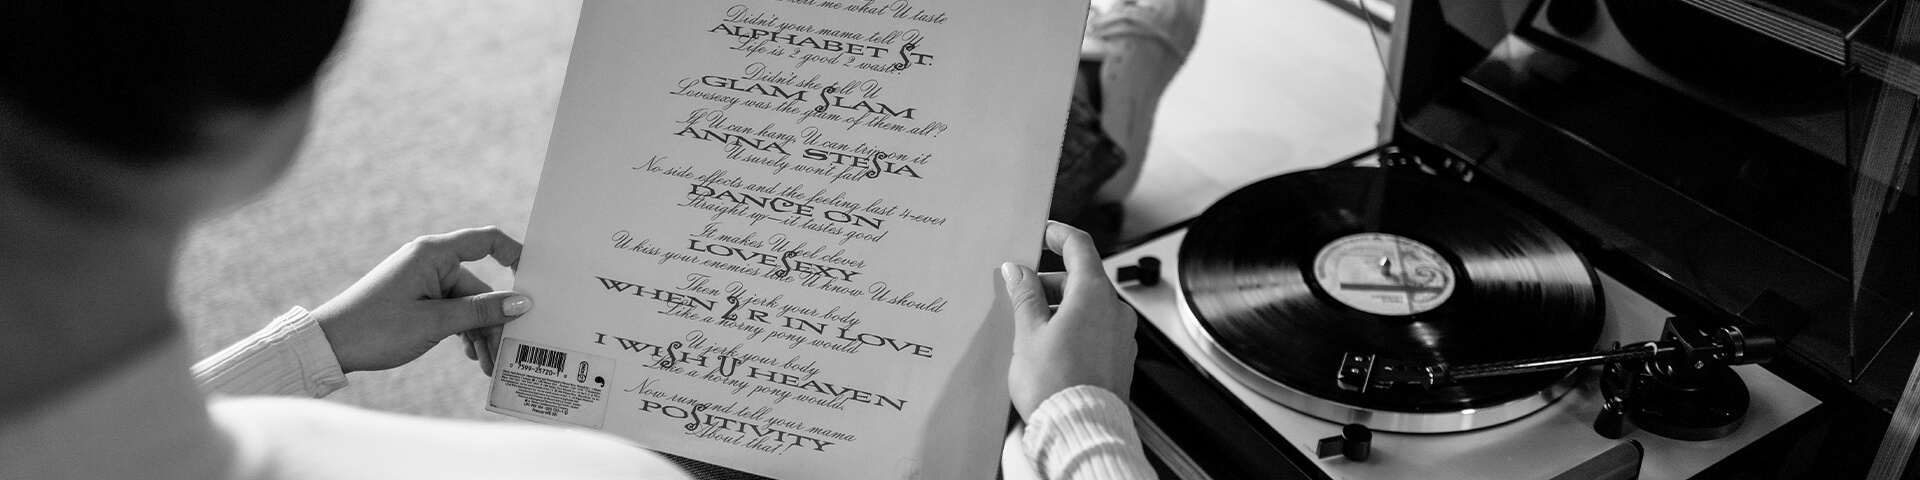 tell me what U taste
Didn't your mama tell U
ALPHABET ST.
Life is 2 good 2 waste?
Didn't she tell U
GLAM SLAM
Lovesexy was the glam of them all?
If U can hang, U can trip on it
ANNA STESIA
U surely won't fall
No side effects and the feeling last 4-ever
DANCE ON
Straight up—it tastes good
It makes U feel clever
LOVESEXY
U kiss your enemies like U know U should
Then U jerk your body
WHEN 2 R IN LOVE
Like a horny pony would
U jerk your body
I WISH U HEAVEN
Like a horny pony would,
Now run and tell your mama
POSITIVITY
About that!
0 7599-25720-1